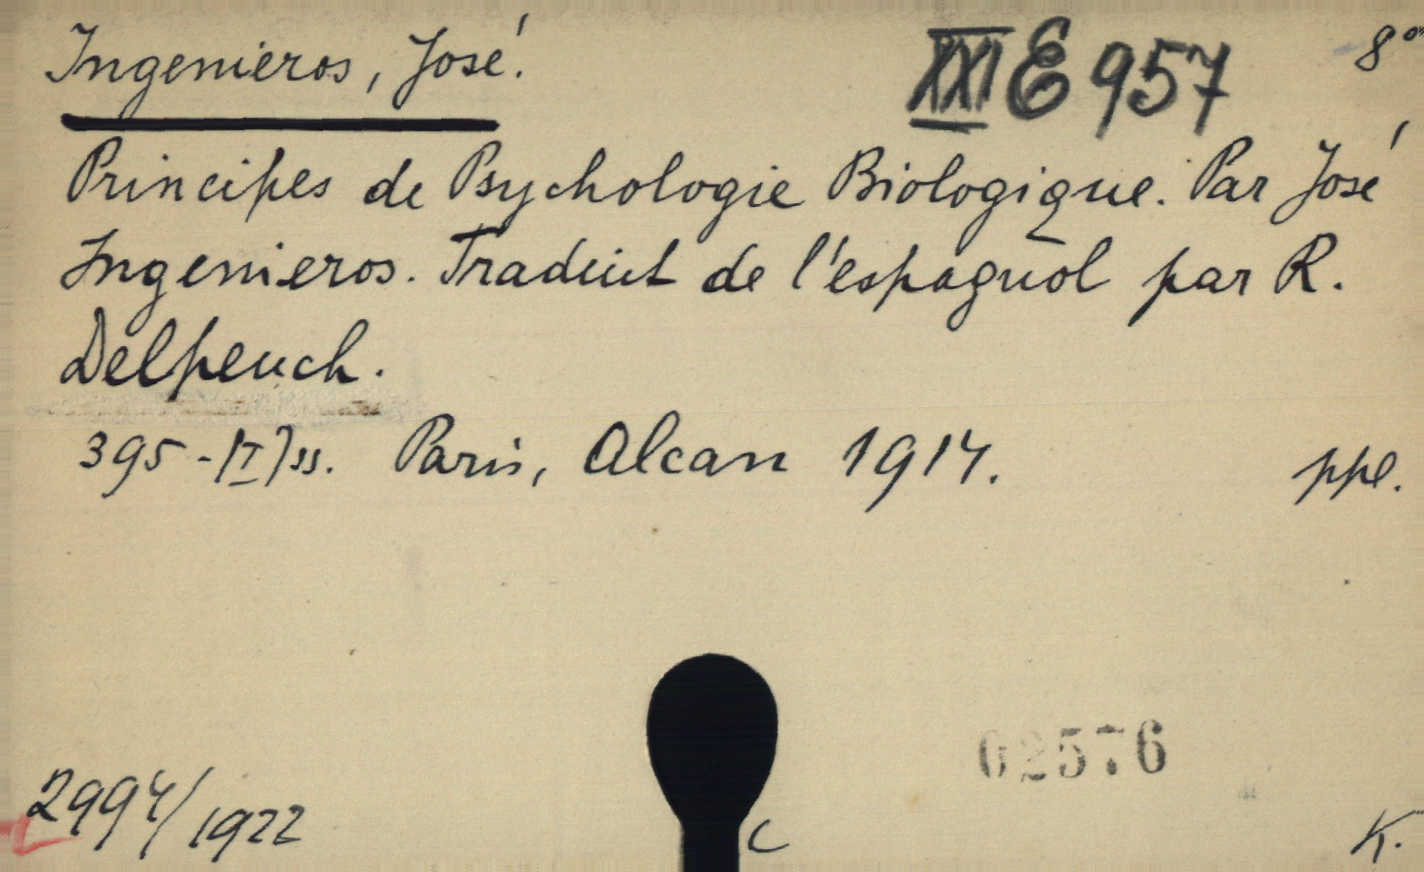 Ingenieros, José.
XXI E 957
8°
Principes de Psychologie Biologique. Par José
Ingenieros. Traduit de l'espagnol par R.
Delpeuch.
395-[I] ss. Paris, Alcan 1914. ppl.
02576
2994/1922
C
K.